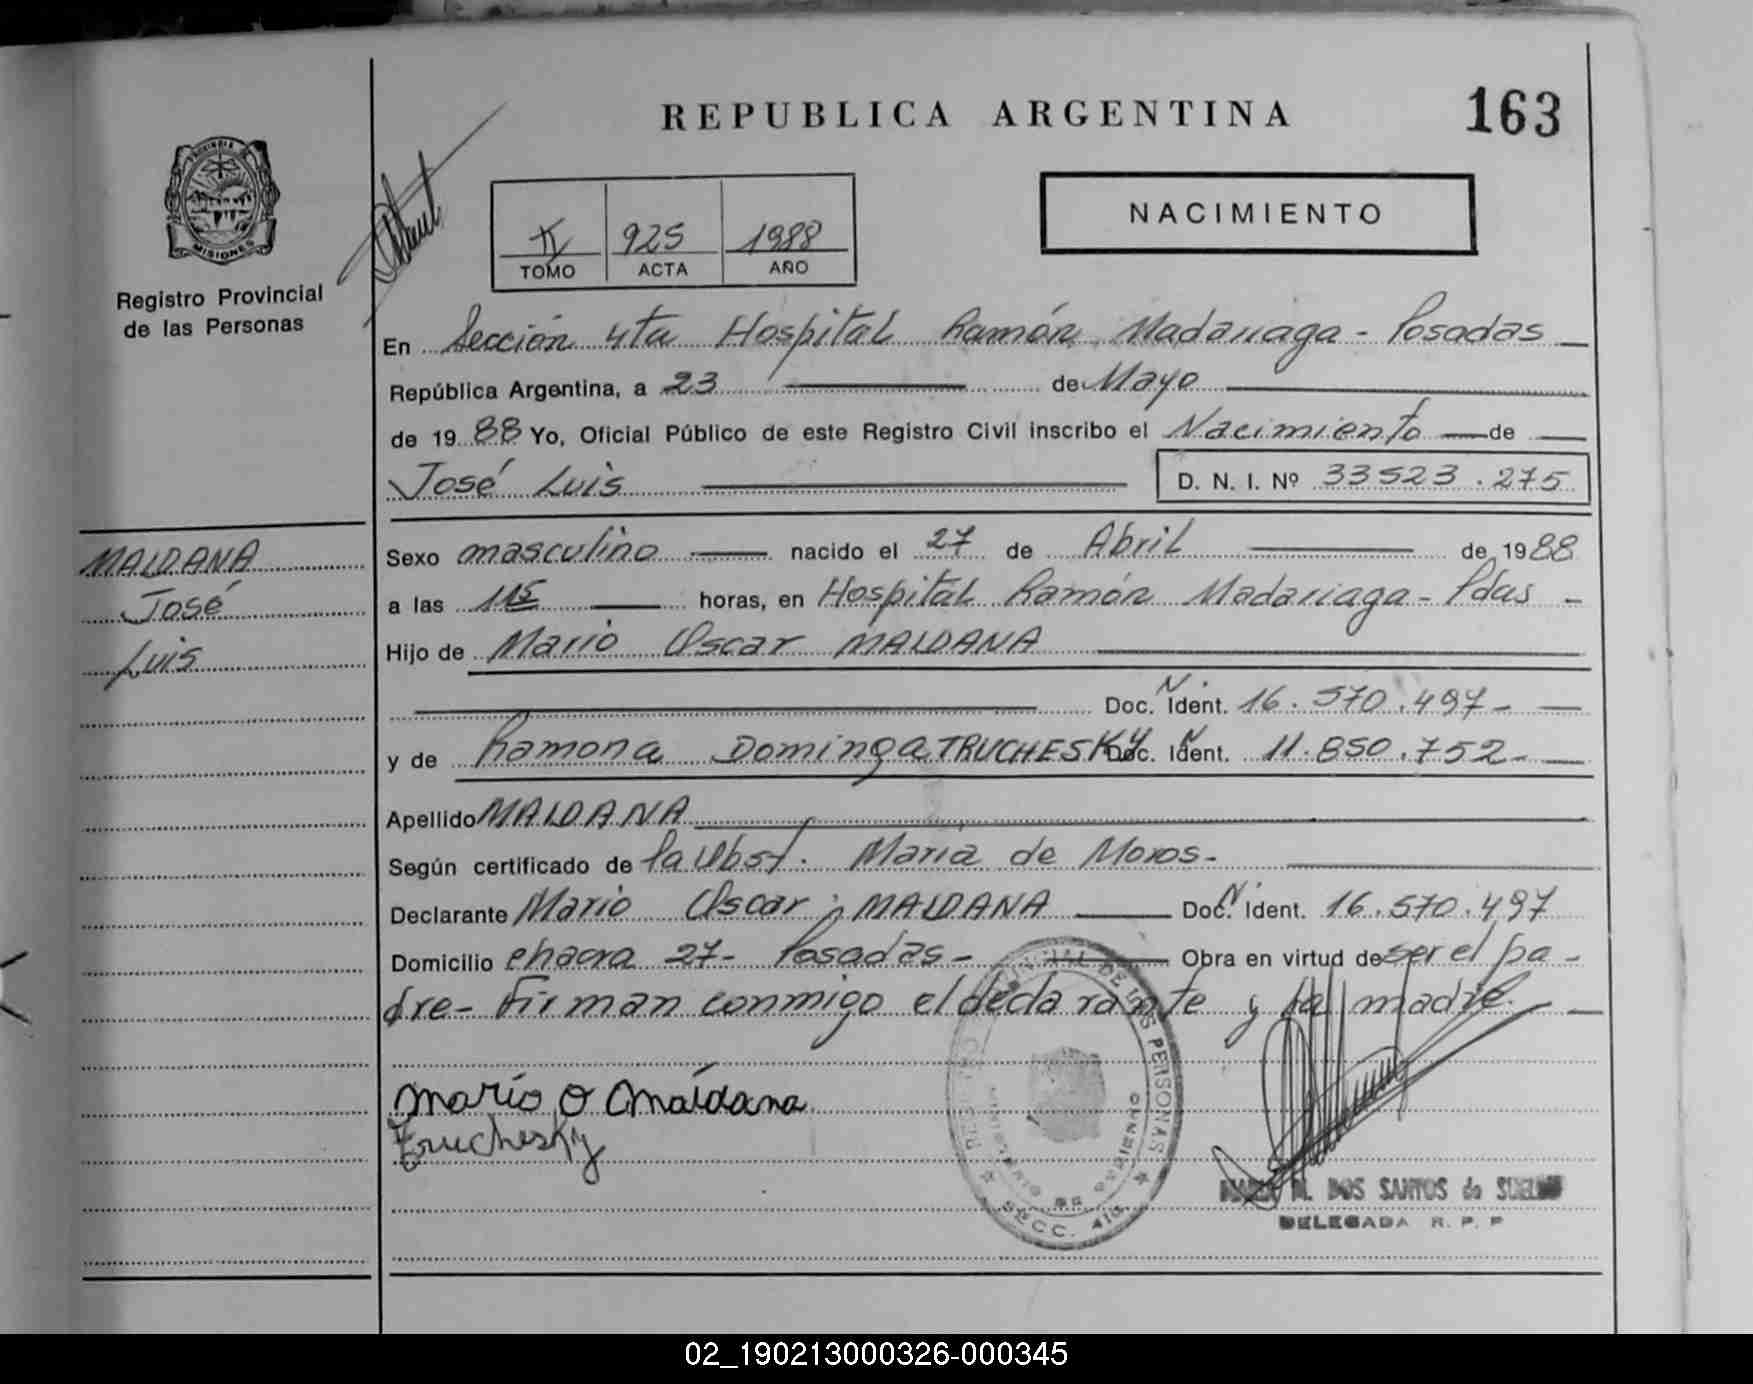 REPUBLICA ARGENTINA
163
PROVINCIA DE
MISIONES
Registro Provincial
de las Personas
NACIMIENTO
925 1988
TOMO ACTA AÑO
En Sección 4ta Hospital Ramón Madariaga - Posadas
República Argentina, a 23 de Mayo
de 1988 Yo, Oficial Público de este Registro Civil inscribo el Nacimiento de
José Luis D. N. I. Nº 33523.275
MALDANA
José
Luis
Sexo masculino nacido el 27 de Abril de 1988
a las 1 15 horas, en Hospital Ramón Madariaga - Pdas -
Hijo de Mario Oscar MALDANA
Doc. N. Ident. 16.570.497-
y de Ramona Dominga TRUCHESKY Doc. N Ident. 11.850.752-
Apellido MALDANA
Según certificado de la Obst. María de Moros-
Declarante Mario Oscar MALDANA Doc. N. Ident. 16.570.497
Domicilio chacra 27- Posadas- Obra en virtud de ser el pa-
dre- Firman conmigo el declarante y la madre.
Mario O Maldana
Truchesky
DE LAS PERSONAS
MINISTERIO DE GOBIERNO
SECC. 4ta
M. DOS SANTOS de
DELEGADA R. P. P
02_190213000326-000345